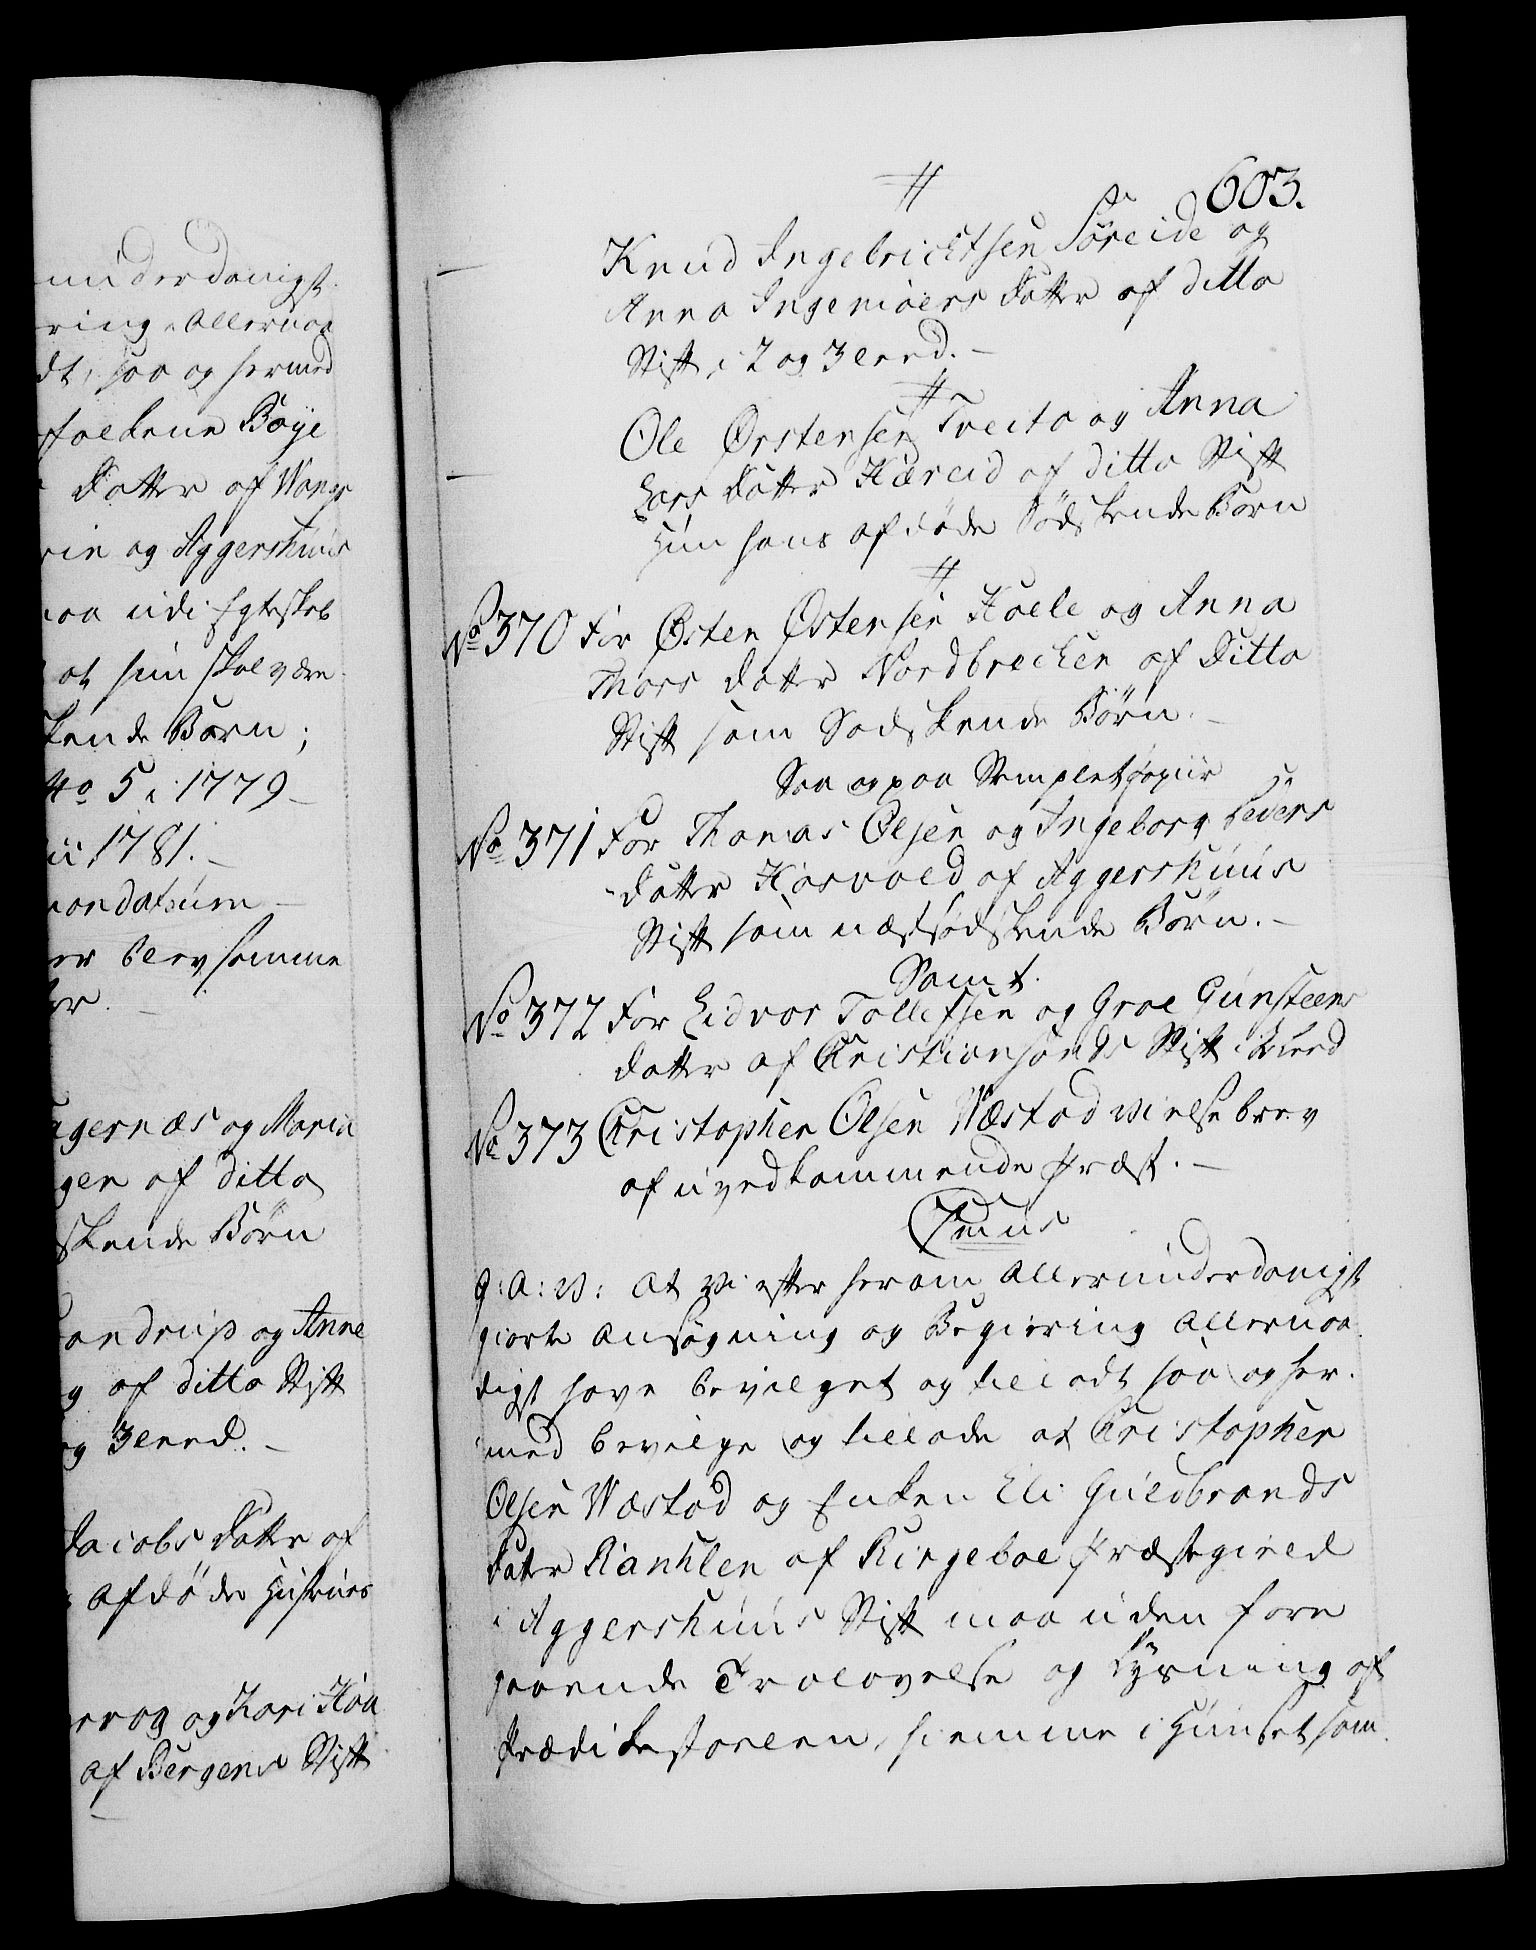 underdanigst
ring Allernaa
dt, saa og hermed
folkene Boye
Datter af Wangs
rin og Aggershuus
maa udi Egteskab
at hun skal være
kende Børn;
No 5 i 1779
1781.
mandatum
er blev samme
ager næs og Maria
gen af ditto
skende Børn
andrup og Anne
g af ditto Stift
og 3 leed.
Jacobs Datter af
afdøde Hustrues
og Kari
af Bergens Stift
603.
Knud Ingebrichtsen Søreide og
Anna Ingemoers Datter af ditto
Stift i 2 og 3 leed.
Ole Ørstensen Tveito og Anna
Lars Datter Hæreid af ditto Stift
hun hans afdøde Sødskende Barn
No 370 For Østen Østensen Hoele og Anna
Thors Datter Nordbrecken af Ditto
Stift som Sødskende Børn.
Saa og paa Stemplet Papiir
No 371 For Thomas Olsen og Ingeborg Peders
Datter Kosvold af Aggershuus
Stift som næstsødskende Børn.
Samt.
No 372 For Eidvor Tollefsen og Groe Gunsteens
Datter af Christiansands Stift i leed
No 373 Christopher Olsen Wæstad Vielsebrev
af uvedkommende Præst.
G: A: V: at Vi efter herom allerunderdanigst
giorte Ansøgning og Begiering Allernaa
digst have bevilget og tilladt saa og her
med bevilge og tillade at Christopher
Olsen Wæstad og Enken Eli Guldbrands
Datter Kanklen af Ringeboe Præstegield
i Aggershuus Stift maa uden fore
gaaende Trolovelse og Lysning af
Prædikestoelen, hiemme i Huuset sam